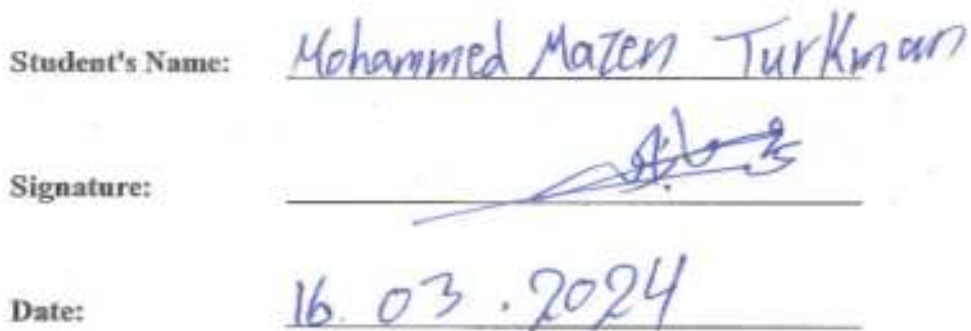 Student's Name: Mohammed Mazen Turkman
Signature:
Date: 16.03.2024